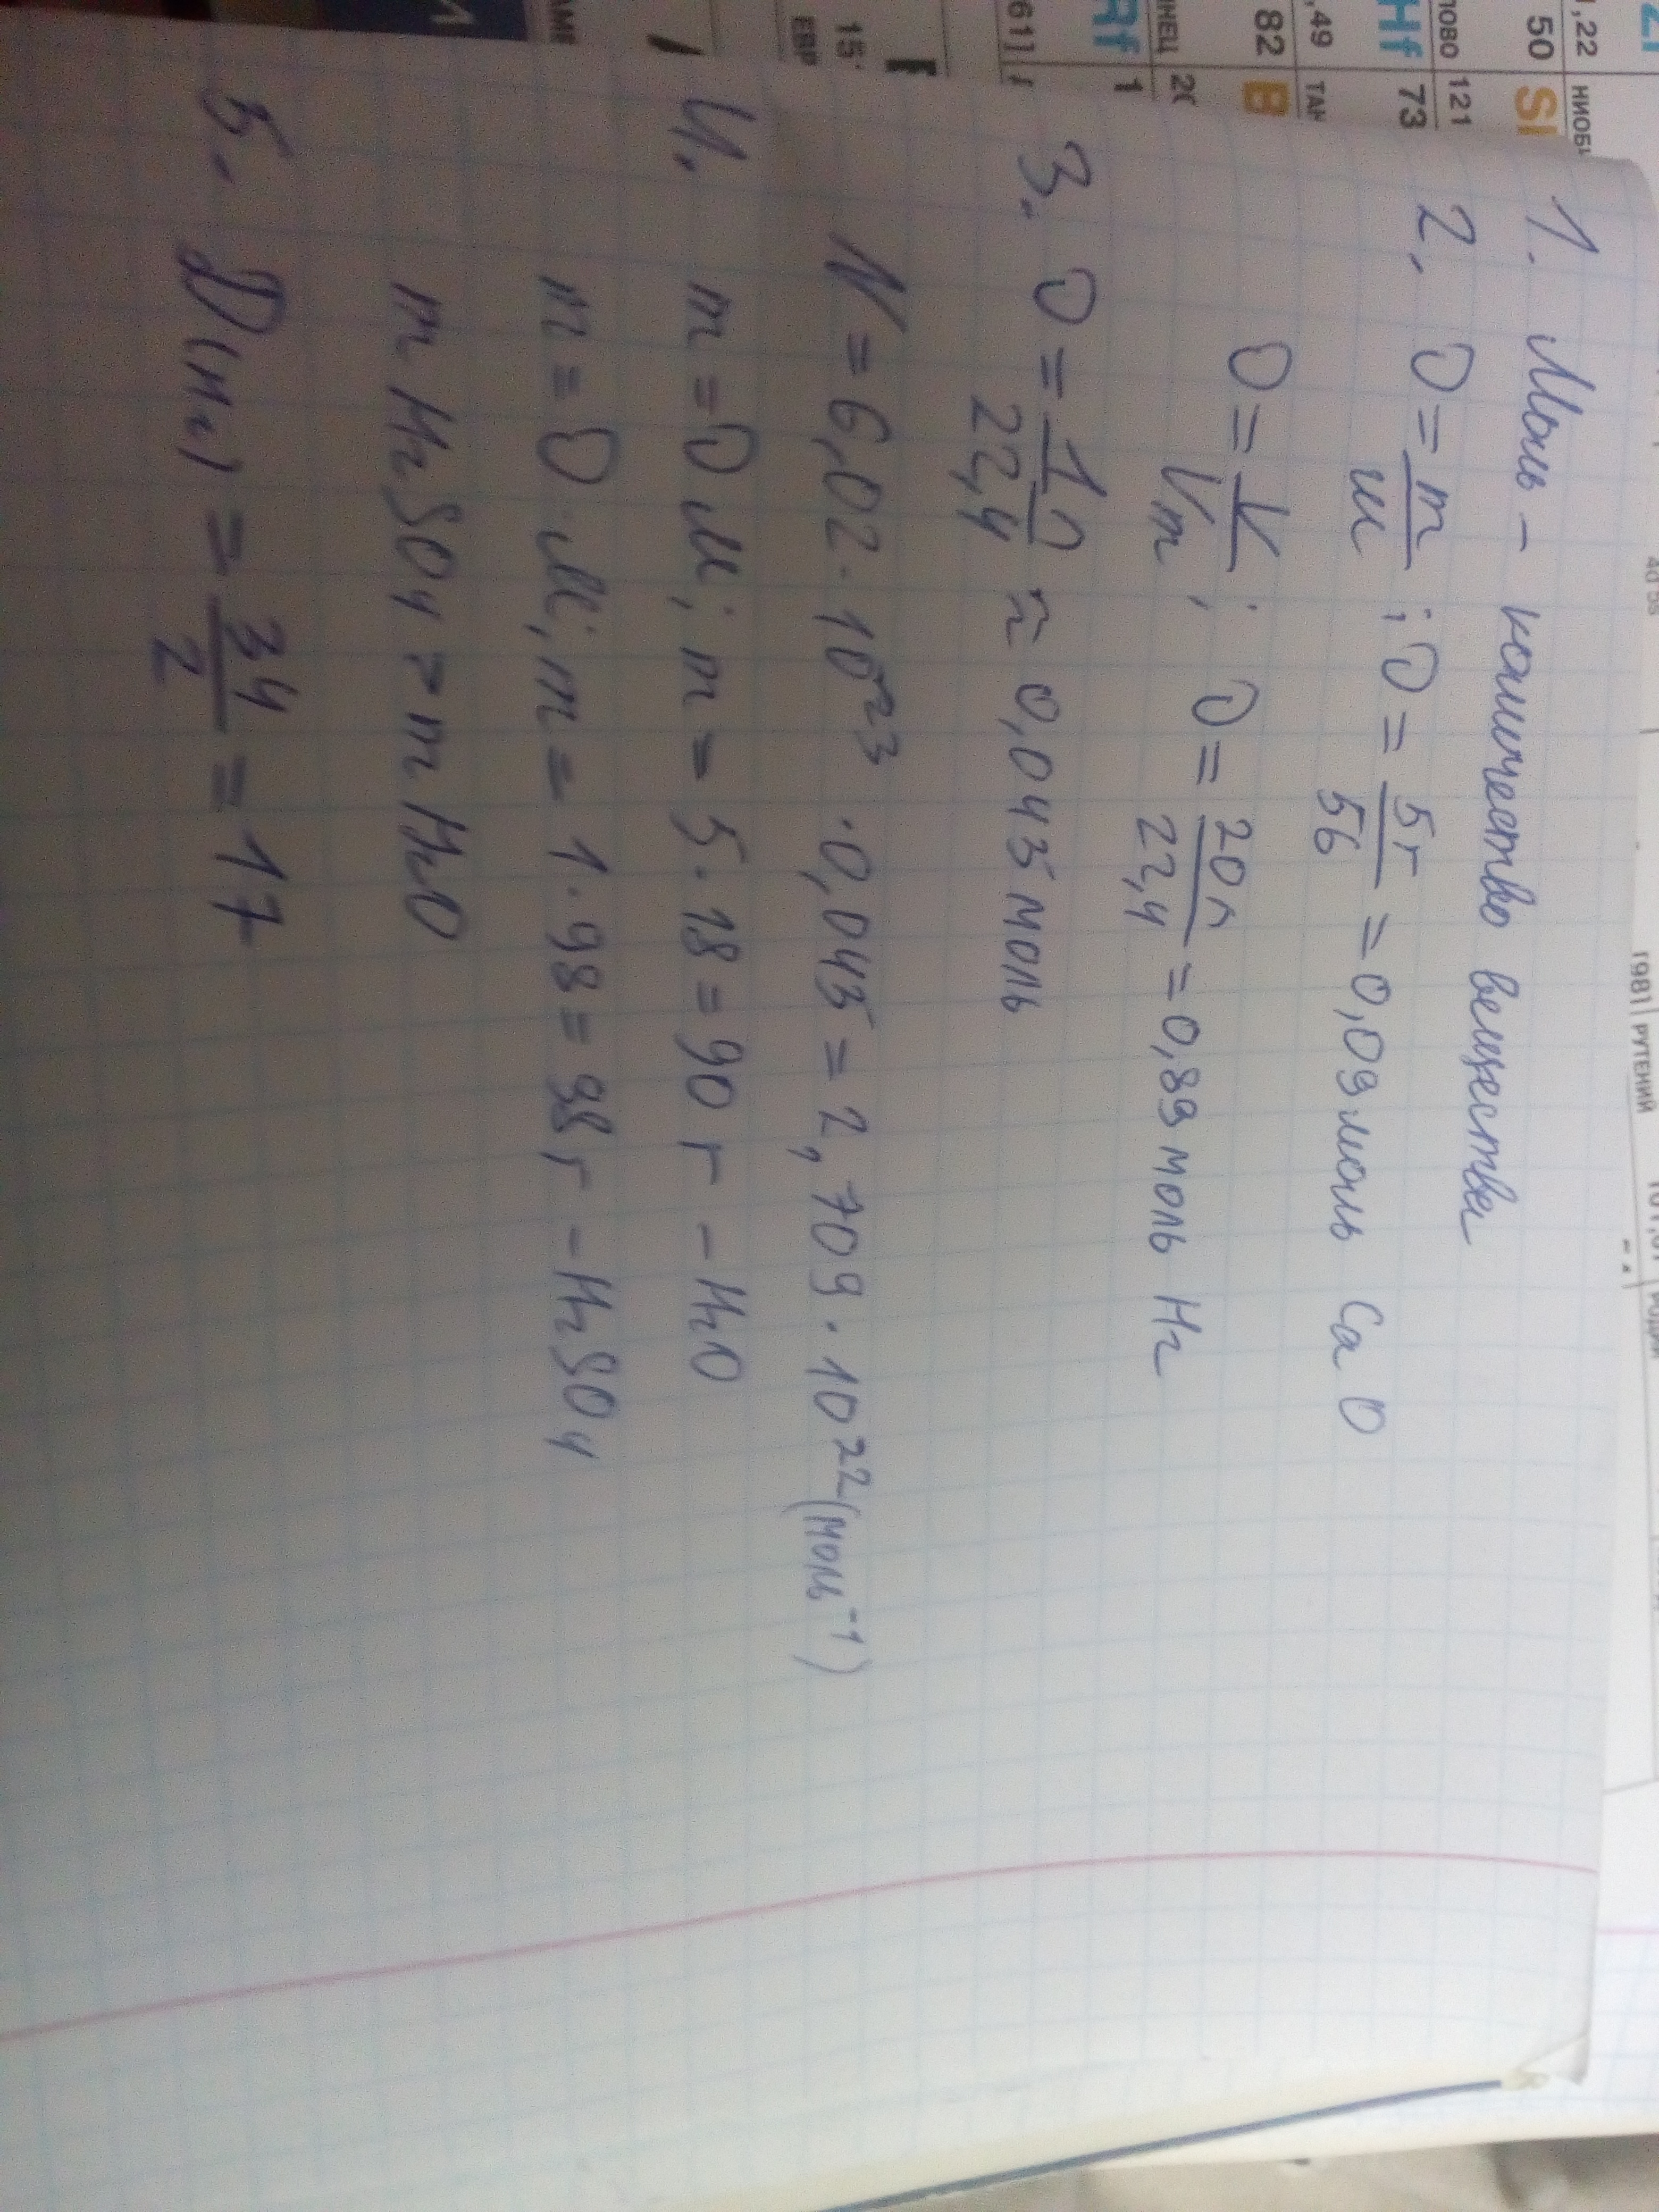 1. Моль - количество вещества
2. ν = m/M ; ν = 5г/56 = 0,09 моль CaO
ν = V/Vm ; ν = 20л/22,4 = 0,89 моль H2
3. ν = 1л/22,4 ≈ 0,045 моль
N = 6,02 · 10²³ · 0,045 = 2,709 · 10²² (моль⁻¹)
4. m = ν M ; m = 5 · 18 = 90 г - H2O
m = ν · M ; m = 1 · 98 = 98 г - H2SO4
m H2SO4 > m H2O
5. D(H2) = 34/2 = 17
1,22
НИОБИ
50
ЛОВО
121
Hf
73
,49
ТАН
82
ИНЕЦ
20
Rf
1
61]
15
ЕВР
АМЕ
4d 5s
[98]
РУТЕНИЙ
РОДИЙ